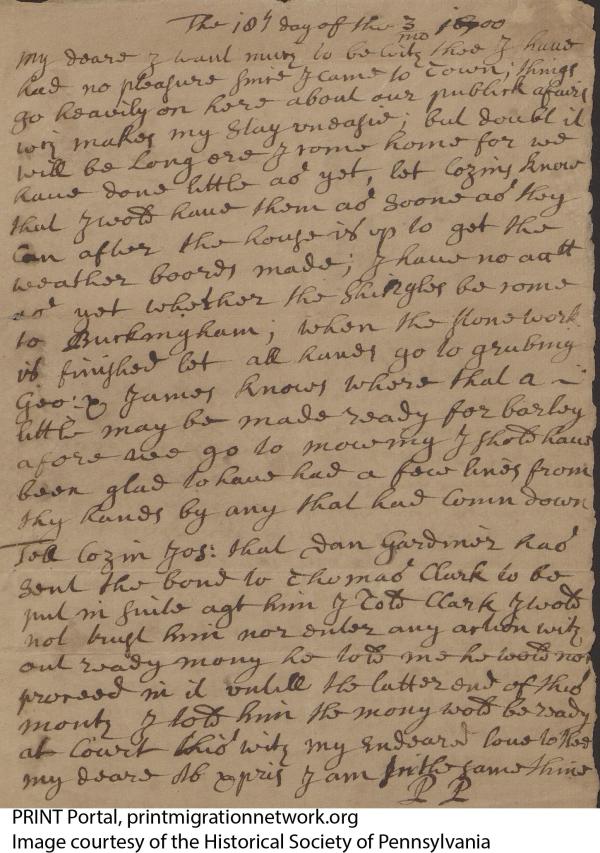 The 18th day of the 3 mo 1700
my deare I want much to be with thee I have
had no pleasure sinse I came to Town; things
go heavily on here about our publick afairs
wch makes my stay uneasie; but doubt it
will be long ere I come home for we
have done little as yet, let Cozins know
that I wold have them as soone as they
Can after the house is up to get the
weather boords made; I have no acctt
as yet whether the Shingles be come
to Buckingham; when the stone work
is finished let all hands go to grubing
Geo: & James knows where that a
little may be made ready for barley
afore wee go to mowing I shold have
been glad to have had a few lines from
thy hands by any that had Comn down
Tell Cozin Jos: that Dan Gardiner has
Sent the bond to Thomas Clark to be
put in suite agt him I Told Clark I wold
not trust him nor enter any action with
out ready mony he told me he wold not
proceed in it untill the latter end of this
month I told him the mony wold be ready
at Court this with my Endeared love to thee
my deare I am In the same thine
P P
PRINT Portal, printmigrationnetwork.org
Image courtesy of the Historical Society of Pennsylvania